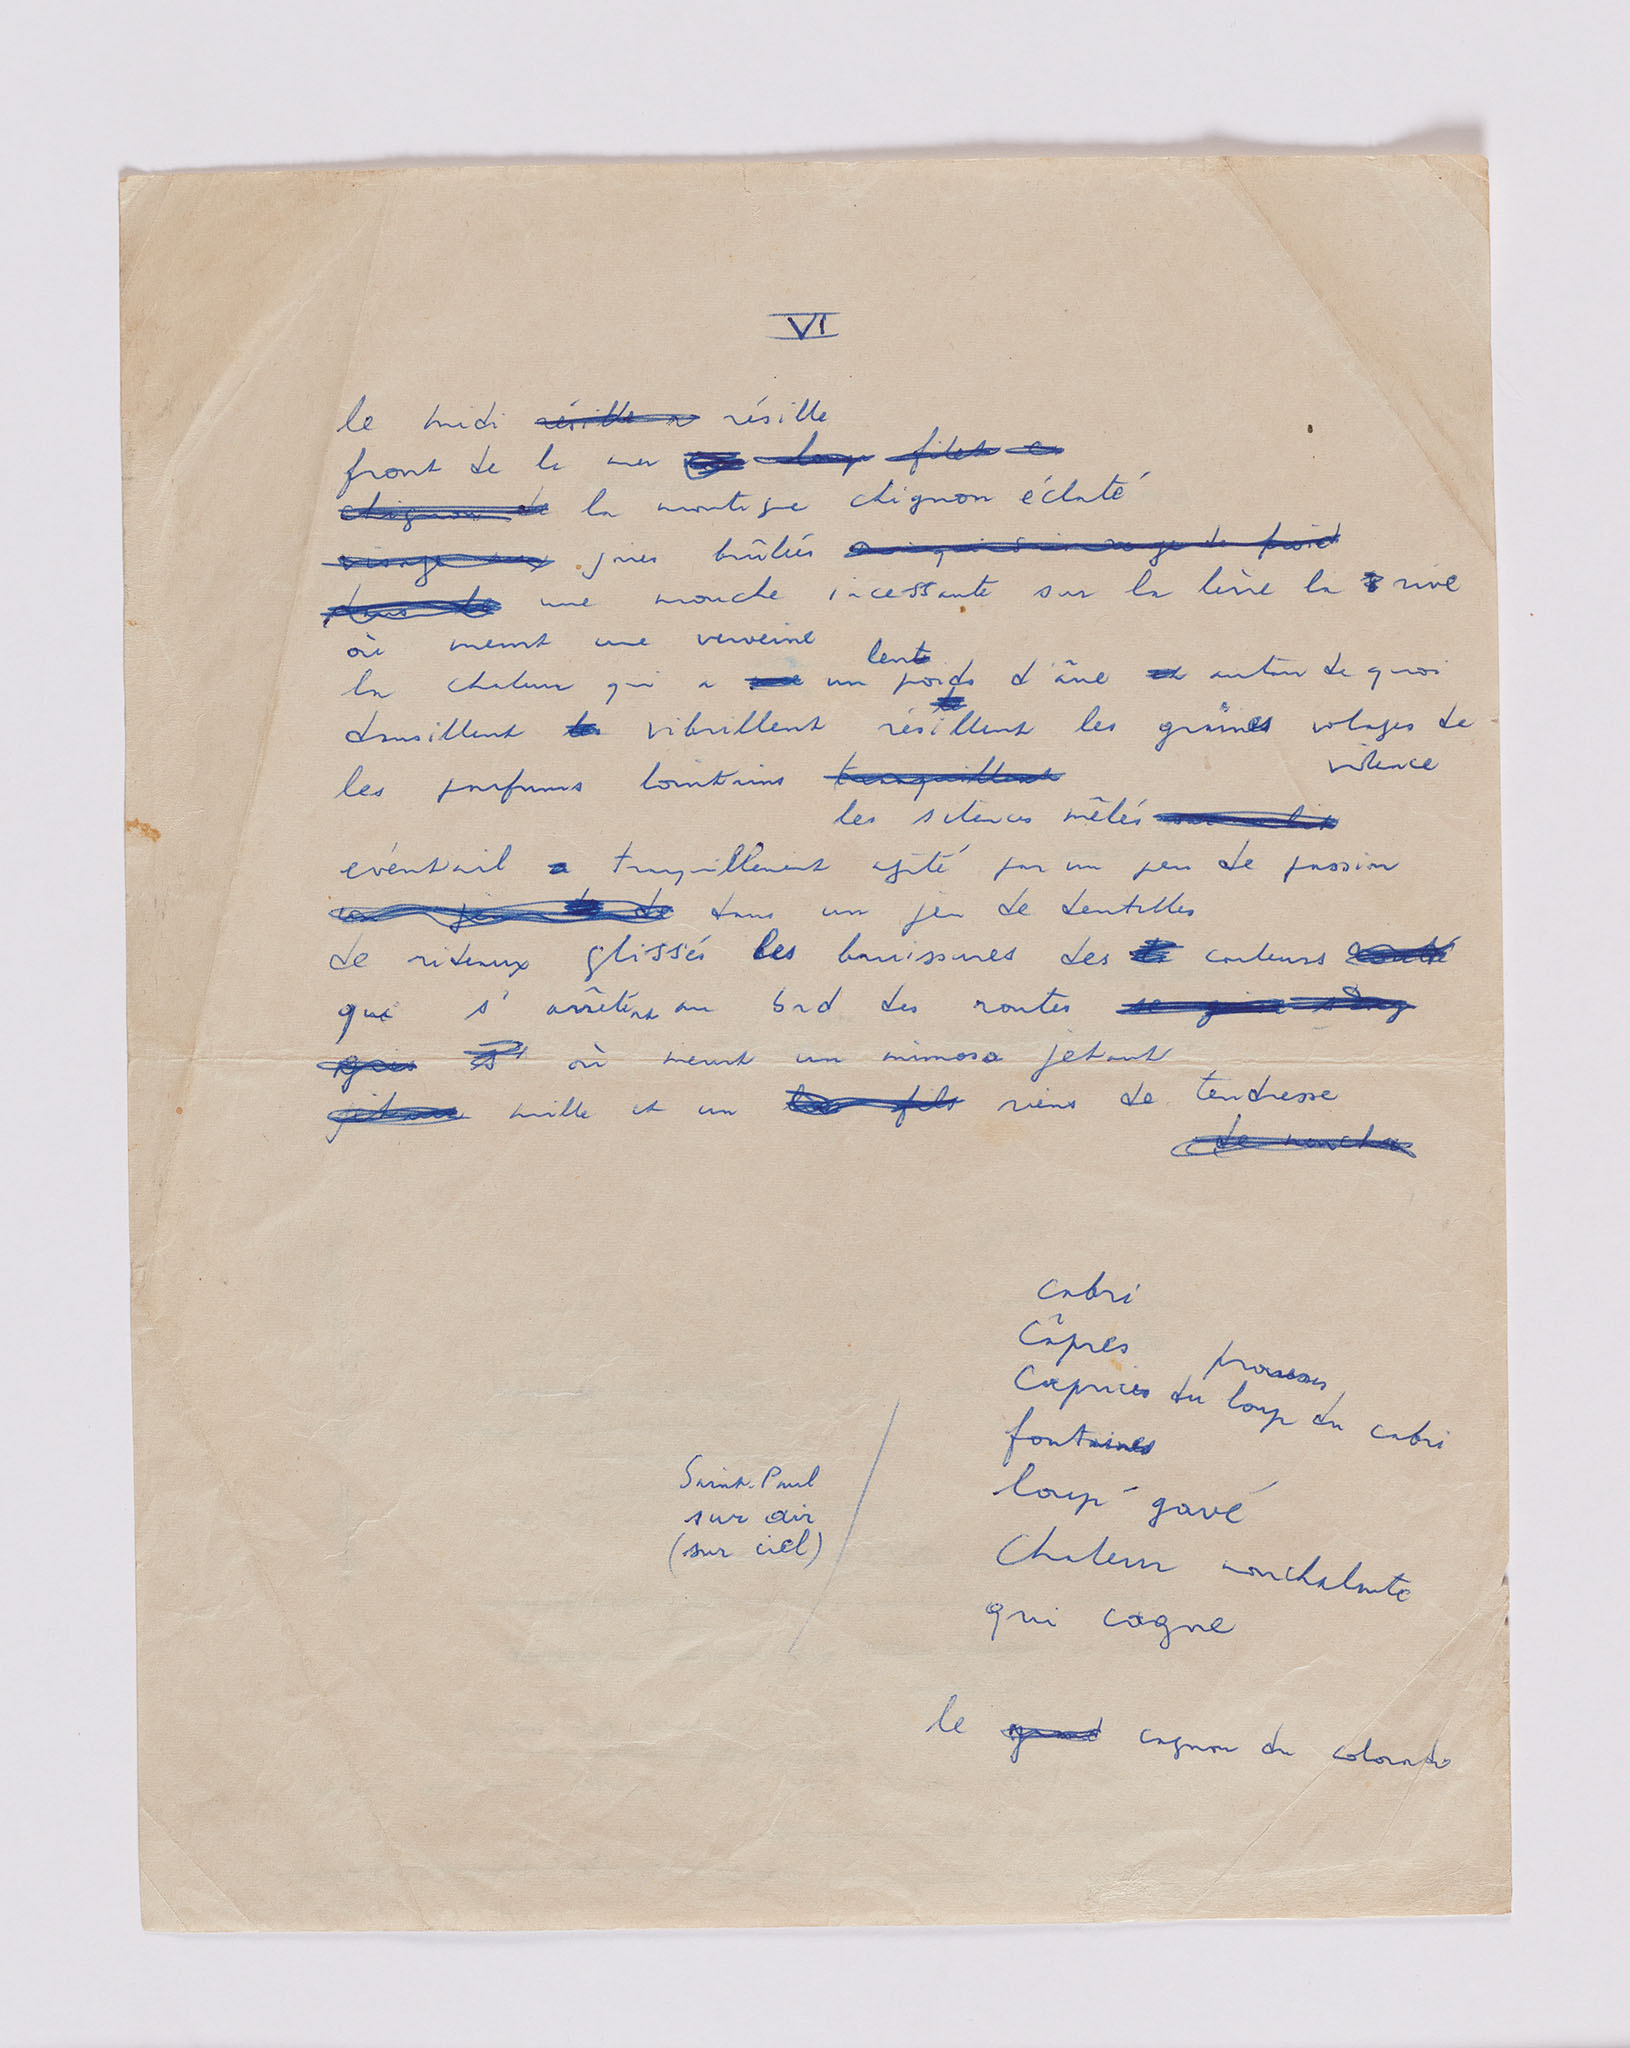 VI
le midi résille a résille
front de la mer loup filet
chignon de la montagne chignon éclaté
visage aux joues brûlées
dans le une mouche incessante sur la lèvre la rive
où meurt une verveine
lent
la chaleur qui a un poids d'âne et autour de quoi
dansillent vibrillent résillent les graines volages de
violence
les parfums lointains tranquillement
les silences mêlés
éventail tranquillement agité par un peu de passion
un jeu de dans un jeu de dentelles
de rideaux glissés les brunissures des couleurs
qui s'arrêtent au bord des routes
qui s' où meurt un mimosa jetant
jetant mille et un fils riens de tendresse
de
cabri
Câpres
prouesses
Caprices du loup du cabri
fontaines
loup gavé
Chaleur nonchalante
qui cogne
Saint-Paul
sur air
(sur ciel)
le grand cagnon du colorado